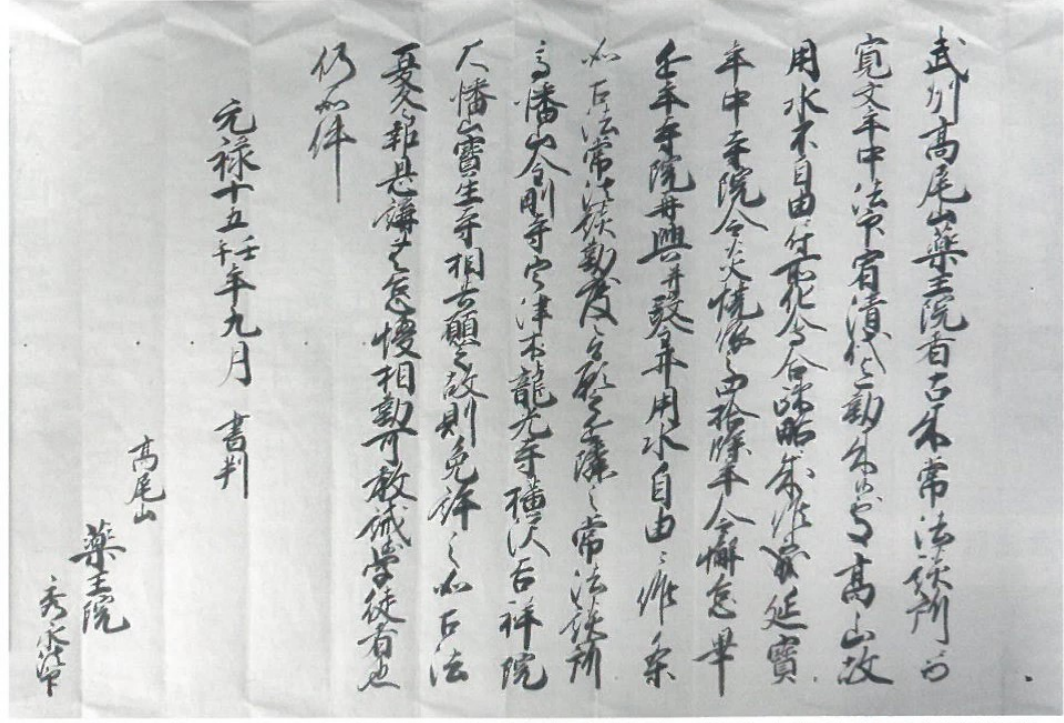 武州高尾山薬王院者古来常法談所而
寛文年中法印宥清代迄勤来処高山故
用水不自由付所化令合疎略
延寶
年中寺院令炎焼依之四拾餘年令懈怠畢
近年寺院再興并発井用水自由
如古法常法談勤度之旨願之隣之常法談所
高幡山金剛寺宇津木龍光寺横沢大祥院
大幡山寶生寺相共願之故則免許之如古法
夏冬報恩講無怠慢相勤可教誡学徒者也
仍如件
元禄十五壬午年九月 書判
高尾山
薬王院
秀永法印